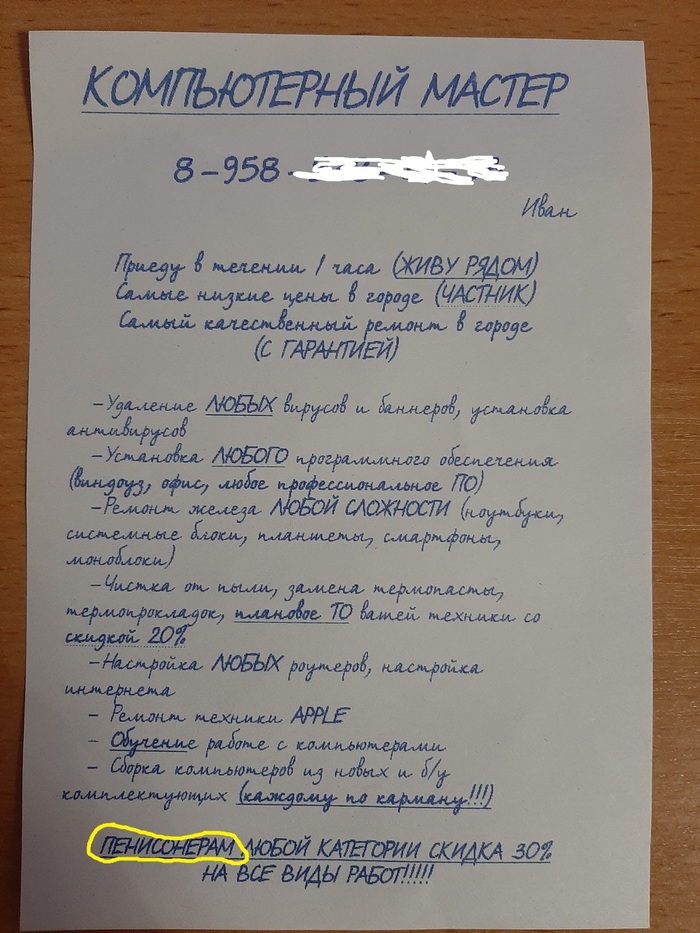 КОМПЬЮТЕРНЫЙ МАСТЕР
8-958-
Иван
Приеду в течении 1 часа (ЖИВУ РЯДОМ)
Самые низкие цены в городе (ЧАСТНИК)
Самый качественный ремонт в городе
(С ГАРАНТИЕЙ)
-Удаление ЛЮБЫХ вирусов и баннеров, установка
антивирусов
-Установка ЛЮБОГО программного обеспечения
(виндоуз, офис, любое профессиональное ПО)
-Ремонт железа ЛЮБОЙ СЛОЖНОСТИ (ноутбуки,
системные блоки, планшеты, смартфоны,
моноблоки)
-Чистка от пыли, замена термопасты,
термопрокладок, плановое ТО вашей техники со
скидкой 20%
-Настройка ЛЮБЫХ роутеров, настройка
интернета
- Ремонт техники APPLE
- Обучение работе с компьютерами
- Сборка компьютеров из новых и б/у
комплектующих (каждому по карману!!!)
ПЕНИСОНЕРАМ ЛЮБОЙ КАТЕГОРИИ СКИДКА 30%
НА ВСЕ ВИДЫ РАБОТ!!!!!